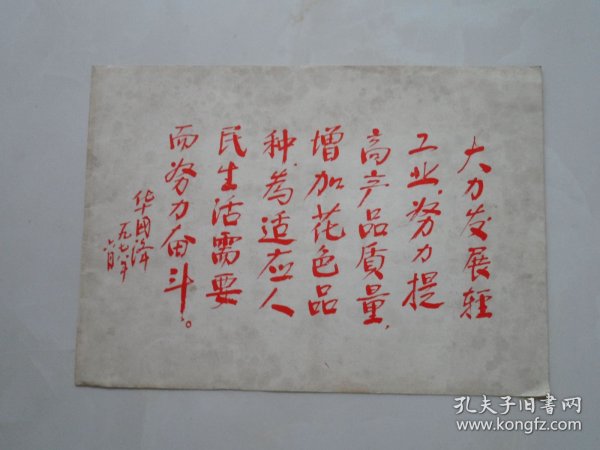 大力发展轻
工业，努力提
高产品质量，
增加花色品
种，为适应人
民生活需要
而努力奋斗。
华国锋
一九七八年
六月
孔夫子旧书网
www.kongfz.com